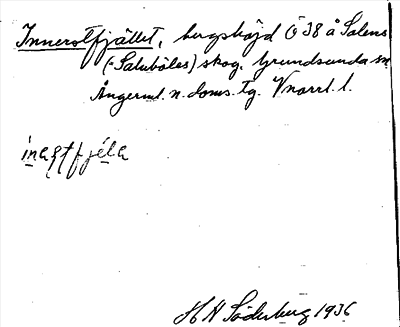 Innerstfjället, bergshöjd Ö 38 å Salens
(-Salubôles) skog. Grundsunda sn
Ångerml. n. doms. tg. V norrl. l.
H H Söderberg 1936